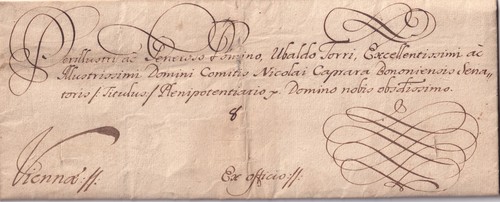 Perillustri ac Generoso Domino, Ubaldo Torri, Excellentissimi ac
Illustrissimi Domini Comitis Nicolai Caprara Bononiensis Sena,
toris /: Titulus :/ Plenipotentiario &. Domino nobis obs͠dissimo.
Viennæ ://: Ex officio ://: